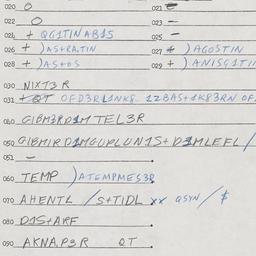 020 O 021
022 O 023 -
024 + QG1TINAB1S 025 -
026 + )AS+RATIN 027 + )AGOSTIN
028 + )AS+OS 029 + )ANISG1TI
030 NIXT3R
031 OFD3RL1NK8 1ZBAS+1K83RN OF
040 GIBM3RD1M TEL3R
050
051 -
060 TEMP )ATEMPMES3R
070 AHENTL /S+TIDL xx QSYN/$
080 D1S+ARF
090 AKNA,P3R QT